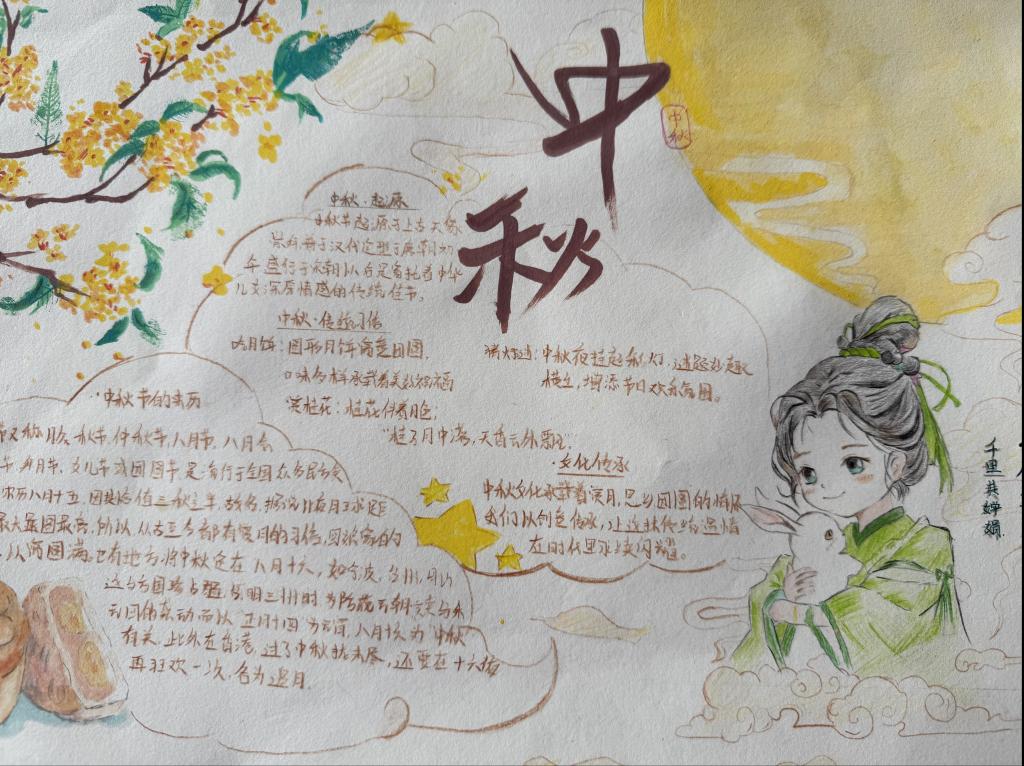 中秋
中秋
中秋·起源
中秋节起源于上古天象
崇拜 于汉代定型于唐朝初
年 盛行于宋朝以后 是寄托着中华
儿女深厚情感的传统佳节。
中秋·传统习俗
吃月饼:圆形月饼寓意团圆,
口味多样承载着美
赏桂花:桂花伴着月色;
"桂子月中落,天香云外飘"。
猜灯谜:中秋夜挂起彩灯,谜题妙趣
横生,增添节日欢乐氛围。
·文化传承
中秋文化承载着赏月、思乡团圆的情怀
我们以创意传承,让这抹传统温情
在时代里永续闪耀。
·中秋节的来历
节又称 秋节、仲秋节、八月节、八月会
节、女儿节或团圆节 是流行于全国众多民族
农历八月十五,因其恰值三秋之半,故名,据说此夜月球距
最大最圆最亮,所以从古至今都有赏月的习俗,回娘家的
以寓圆满,也有地方将中秋定在八月十六,如宁波、台州、舟山
这与方国珍占 明三州时 为防 元朝
以 正月十四 为元宵、八月十六为 中秋
有关,此外在香港,过了中秋 未尽,还要在十六夜
再狂欢一次,名为追月.
千里共婵娟